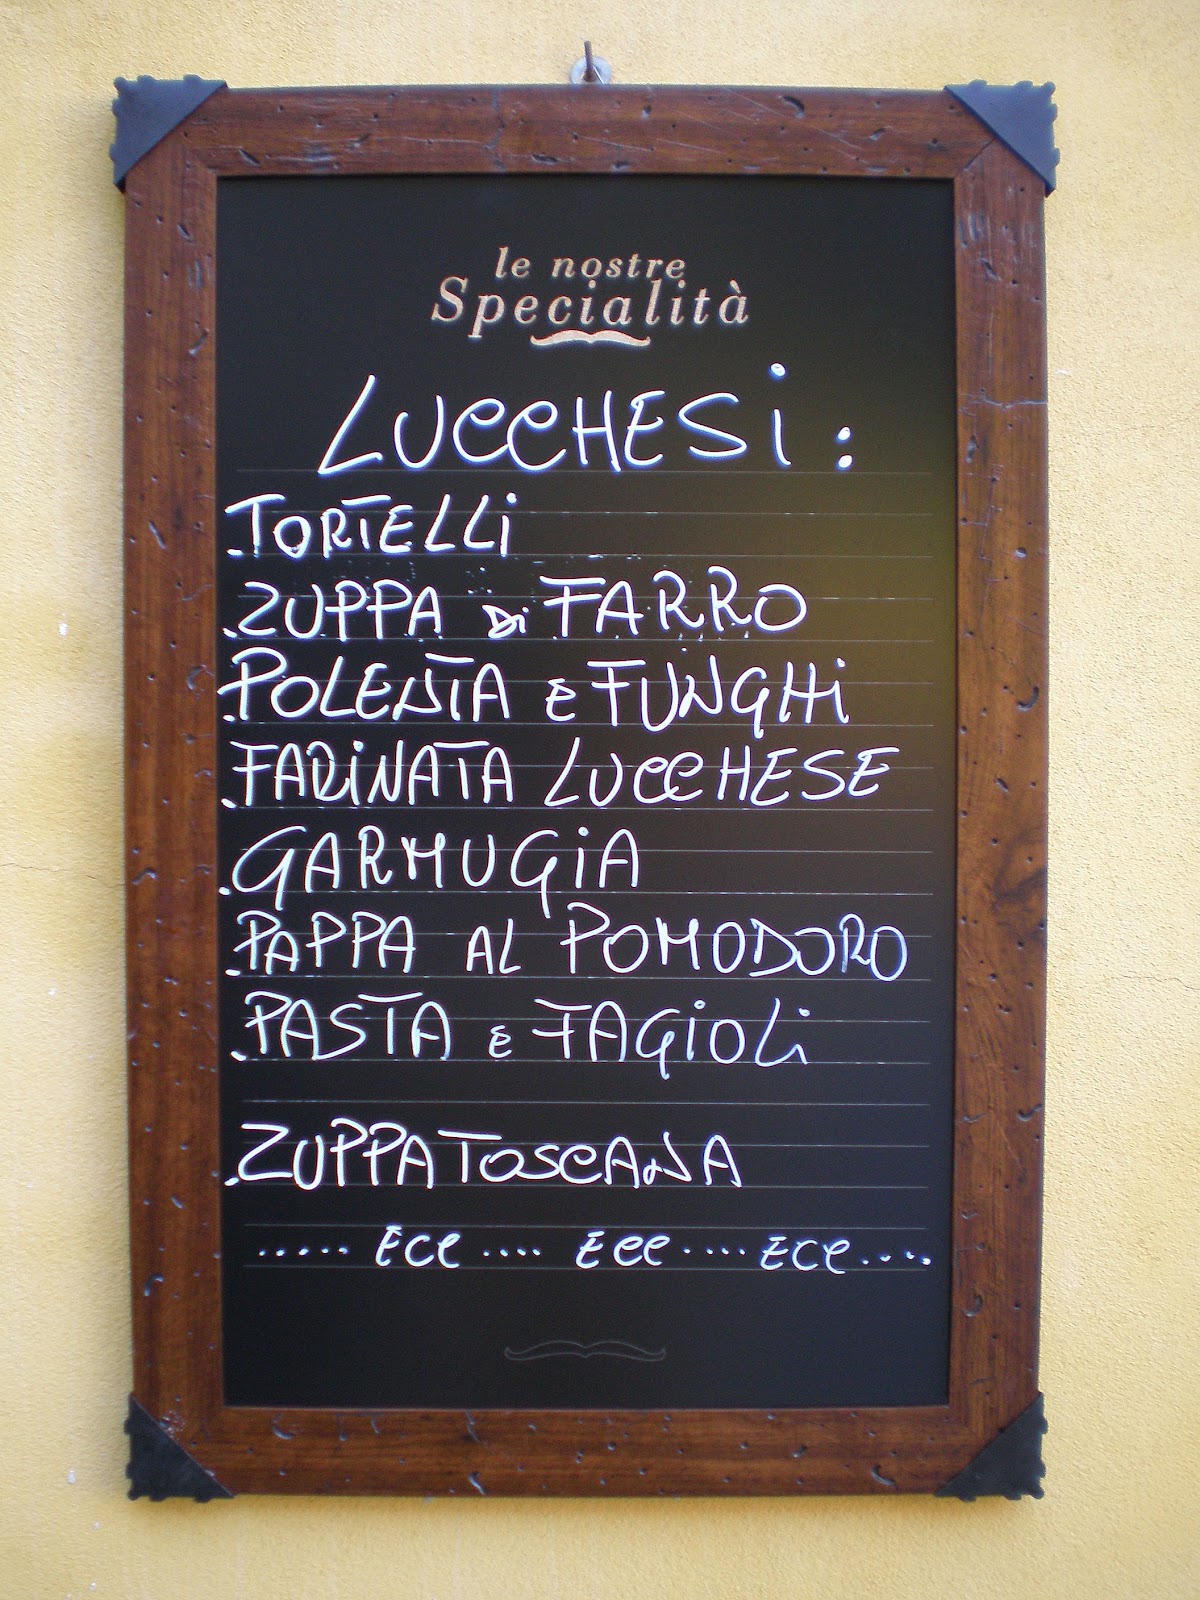 le nostre
Specialità
LUCCHESi :
.TORTELLi
.ZUPPA Di FARRO
.POLENTA E FUNGHi
.FARiNATA LUCCHESE
.GARMUGiA
.PAPPA AL POMODORO
.PASTA E FAGiOLi
.ZUPPA TOSCANA
..... ECC .... ECC .... ECC ....